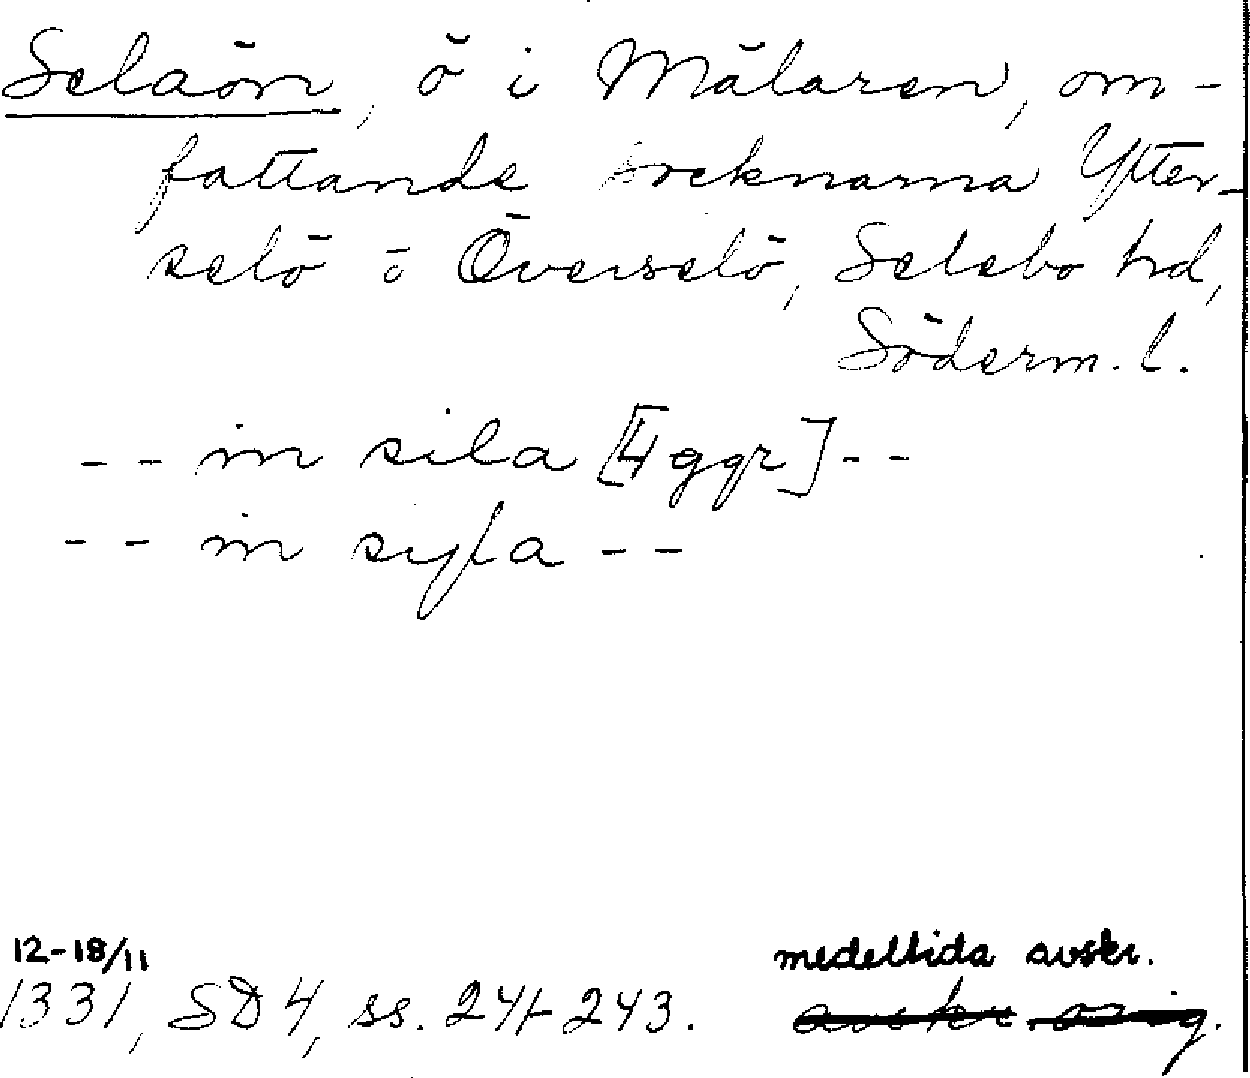 Selaön, ö i Mälaren, om-
fattande socknarna Ytter-
selö o Överselö, Selebo hd,
Söderm. l.
-- in sila [4 ggr] --
-- in syla --
12-18/11 medeltida avskr.
1331, SD 4, ss. 241-243.